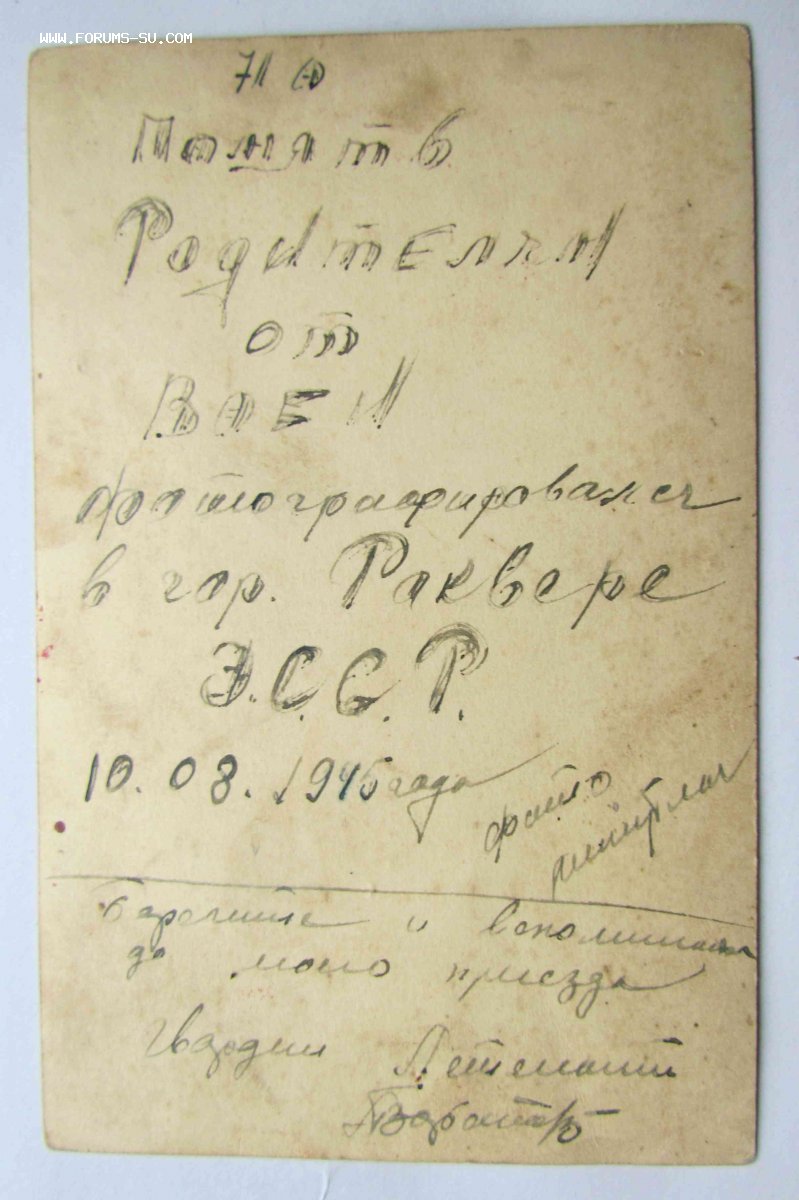 WWW.FORUMS-SU.COM
На
Помять
Родителям
от
Васи
фотографировался
в гор. Раквере
Э.С.С.Р.
10.08.1945 года
фото
Берегите и вспоминайте
до моего приезда
Гвардии Летенант